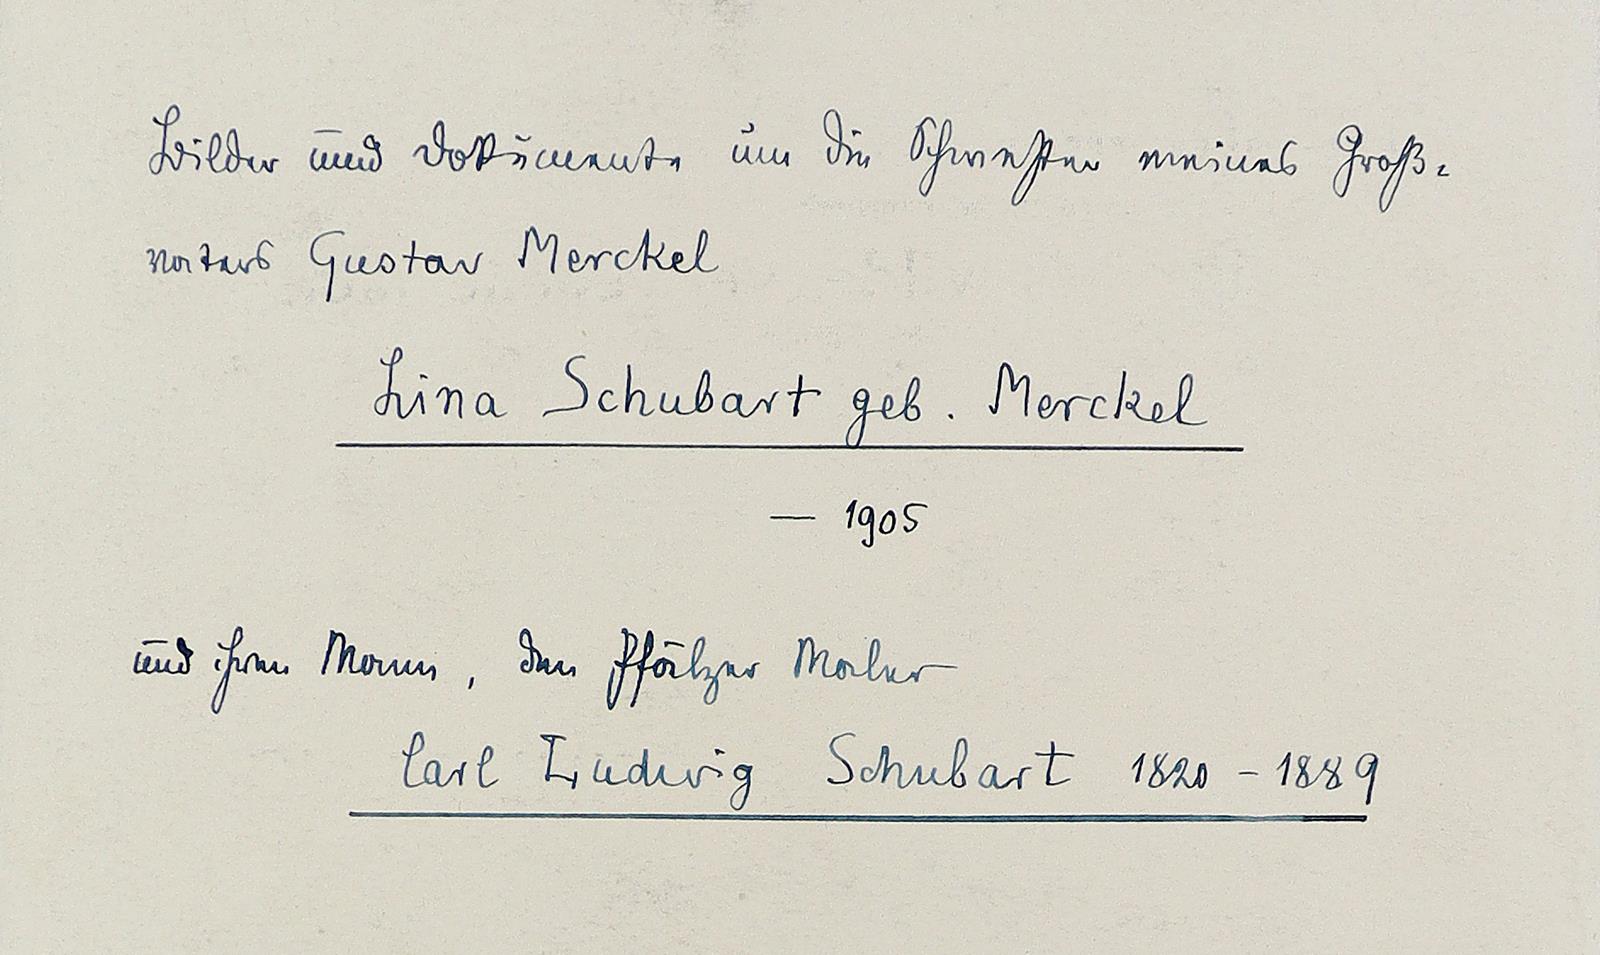 Bilder und Dokumente um die Schwester meines Groß=
vaters Gustav Merckel
Lina Schubart geb. Merckel
— 1905
und ihren Mann, den Pfälzer Maler
Carl Ludwig Schubart 1820 – 1889